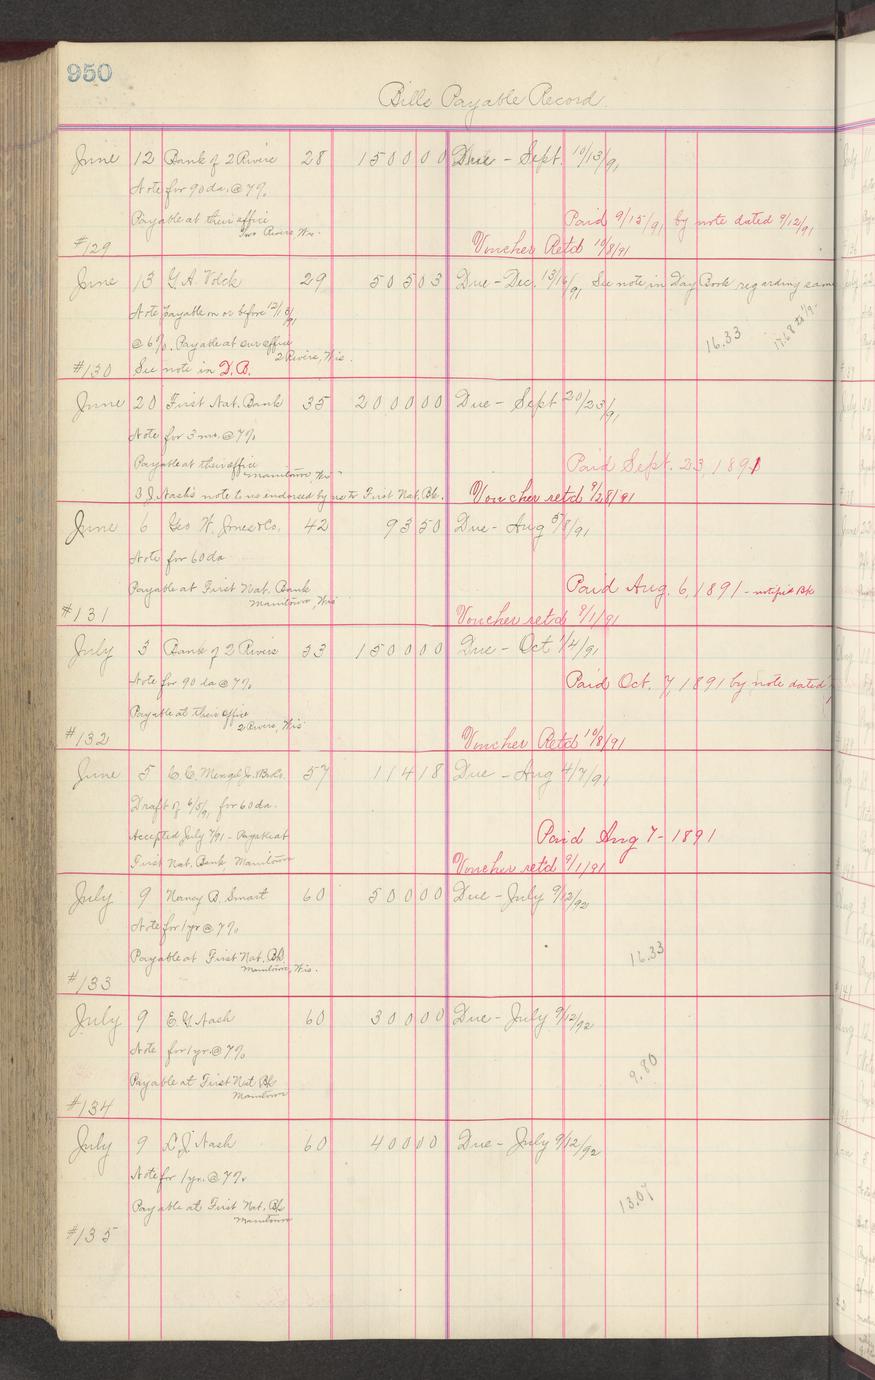 950
Bills Payable Record.
June 12 Bank of 2 Rivers 28 1500 00 Due - Sept. 10/13/91
Note for 90 da. @ 7%
Payable at their office
Two Rivers Wis. Paid 9/15/91 by note dated 9/12/91
#129 Voucher Retd 10/8/91
June 13 G.A. Volck 29 505 03 Due - Dec. 13/16/91 See note in Day Book regarding same
Note payable on or before 12/13/91
@ 6%. Payable at our office 16.33
2 Rivers, Wis.
#130 See note in D.B.
June 20 First Nat. Bank 35 2000 00 Due - Sept 20/23/91
Note for 3 mo. @ 7%
Payable at their office Paid Sept. 23, 1891
Manitowoc, Wis
J. Nash's note to us endorsed by us to First Nat. Bk. Voucher retd 9/28/91
June 6 Geo W. Jones & Co. 42 93 50 Due - Aug 5/8/91
Note for 60 da
Payable at First Nat. Bank Paid Aug. 6, 1891 - notified Bk
Manitowoc, Wis
#131 Voucher retd 9/1/91
July 3 Bank of 2 Rivers 53 1500 00 Due - Oct 1/4/91
Note for 90 da @ 7% Paid Oct. 7, 1891 by note dated
Payable at their office
2 Rivers, Wis
#132 Voucher Retd 10/8/91
June 5 C.C. Mengel Jr. & Bro Co. 57 114 18 Due - Aug 4/7/91
Draft of 6/5/91 for 60 da.
Accepted July 7/91 - Payable at Paid Aug 7 - 1891
First Nat. Bank Manitowoc Voucher retd 9/1/91
July 9 Nancy B. Smart 60 500 00 Due - July 9/12/92
Note for 1 yr @ 7%
Payable at First Nat. Bk. 16.33
Manitowoc, Wis.
#133
July 9 E.G. Nash 60 300 00 Due - July 9/12/92
Note for 1 yr. @ 7%
Payable at First Nat Bk 9.80
Manitowoc
#134
July 9 L.J. Nash 60 400 00 Due - July 9/12/92
Note for 1 yr. @ 7%
Payable at First Nat. Bk 13.07
Manitowoc
#135